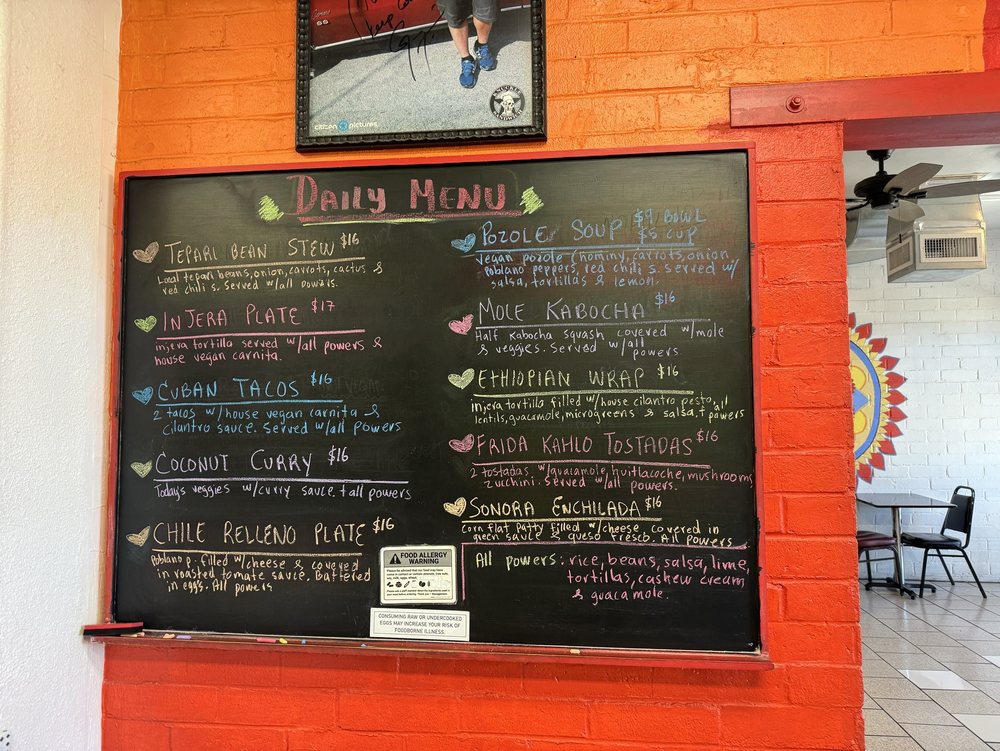 citizen pictures
DAILY MENU
TEPARI BEAN STEW $16
Local tepari beans, onion, carrots, cactus &
red chili s. served w/all powers.
INJERA PLATE $17
injera tortilla served w/all powers &
house vegan carnita.
CUBAN TACOS $16
2 tacos w/house vegan carnita &
cilantro sauce. served w/all powers
COCONUT CURRY $16
Today's veggies w/curry sauce. + all powers
CHILE RELLENO PLATE $16
Poblano p. filled w/cheese & covered
in roasted tomate sauce. Battered
in eggs. All powers
POZOLE SOUP $9 BOWL
$5 CUP
vegan pozole (hominy, carrots, onion
poblano peppers, red chili s. served w/
salsa, tortillas & lemon.
MOLE KABOCHA $16
Half Kabocha squash covered w/mole
& veggies. Served w/all
powers
ETHIOPIAN WRAP $16
injera tortilla filled w/house cilantro pesto,
lentils, guacamole, microgreens & salsa. + all powers
FRIDA KAHLO TOSTADAS $16
2 tostadas w/guacamole, huitlacoche, mushrooms
zucchini. served w/all powers.
SONORA ENCHILADA $16
Corn flat patty filled w/cheese covered in
green sauce & queso fresco. All powers
All powers: rice, beans, salsa, lime,
tortillas, cashew cream
& guacamole.
FOOD ALLERGY
WARNING
CONSUMING RAW OR UNDERCOOKED
EGGS MAY INCREASE YOUR RISK OF
FOODBORNE ILLNESS.